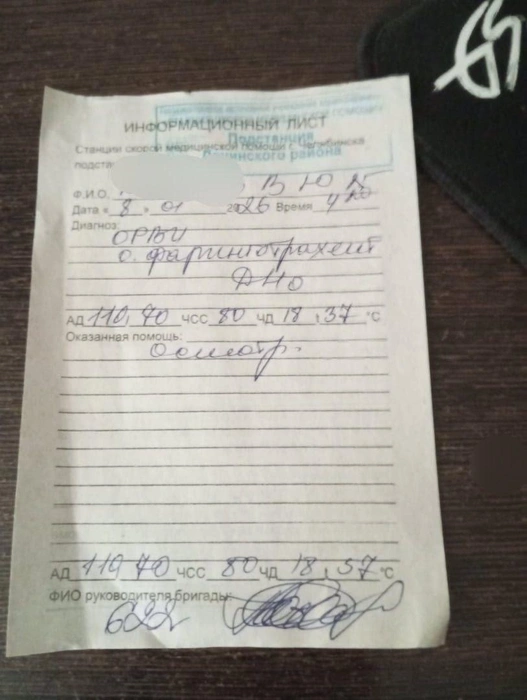 ИНФОРМАЦИОННЫЙ ЛИСТ
Подстанция
Станции скорой медицинской помощи г. Челябинска
Ленинского района
подста
Ф.И.О. В Ю
Дата «8» 01 2026 Время 4
Диагноз:
ОРВИ
о. фаринготрахеит
ДНО
АД 110, 70 ЧСС 80 ЧД 18 t 37 °С
Оказанная помощь:
Осмотр.
АД 110 70 ЧСС 80 ЧД 18 t 37 °С
ФИО руководителя бригады:
622